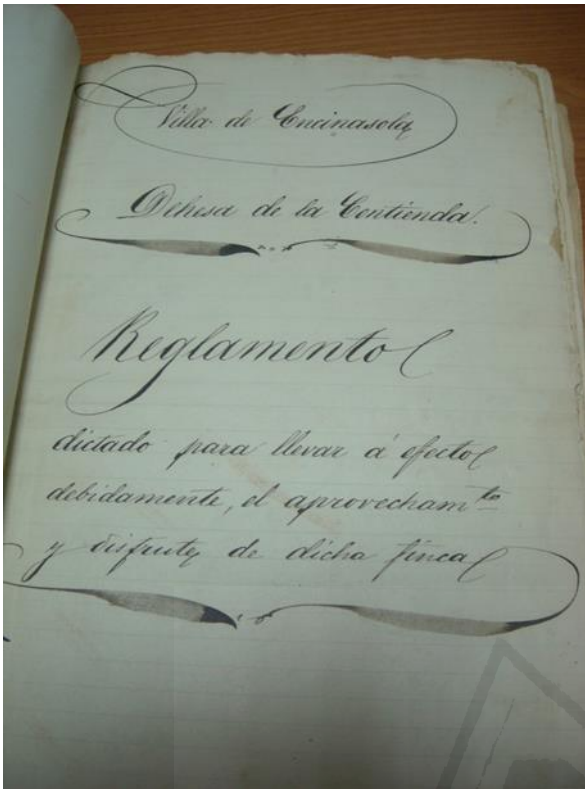 Villa de Encinasola
Dehesa de la Contienda.
Reglamento
dictado para llevar á efecto
debidamente, el aprovecham^to
y disfrute de dicha finca